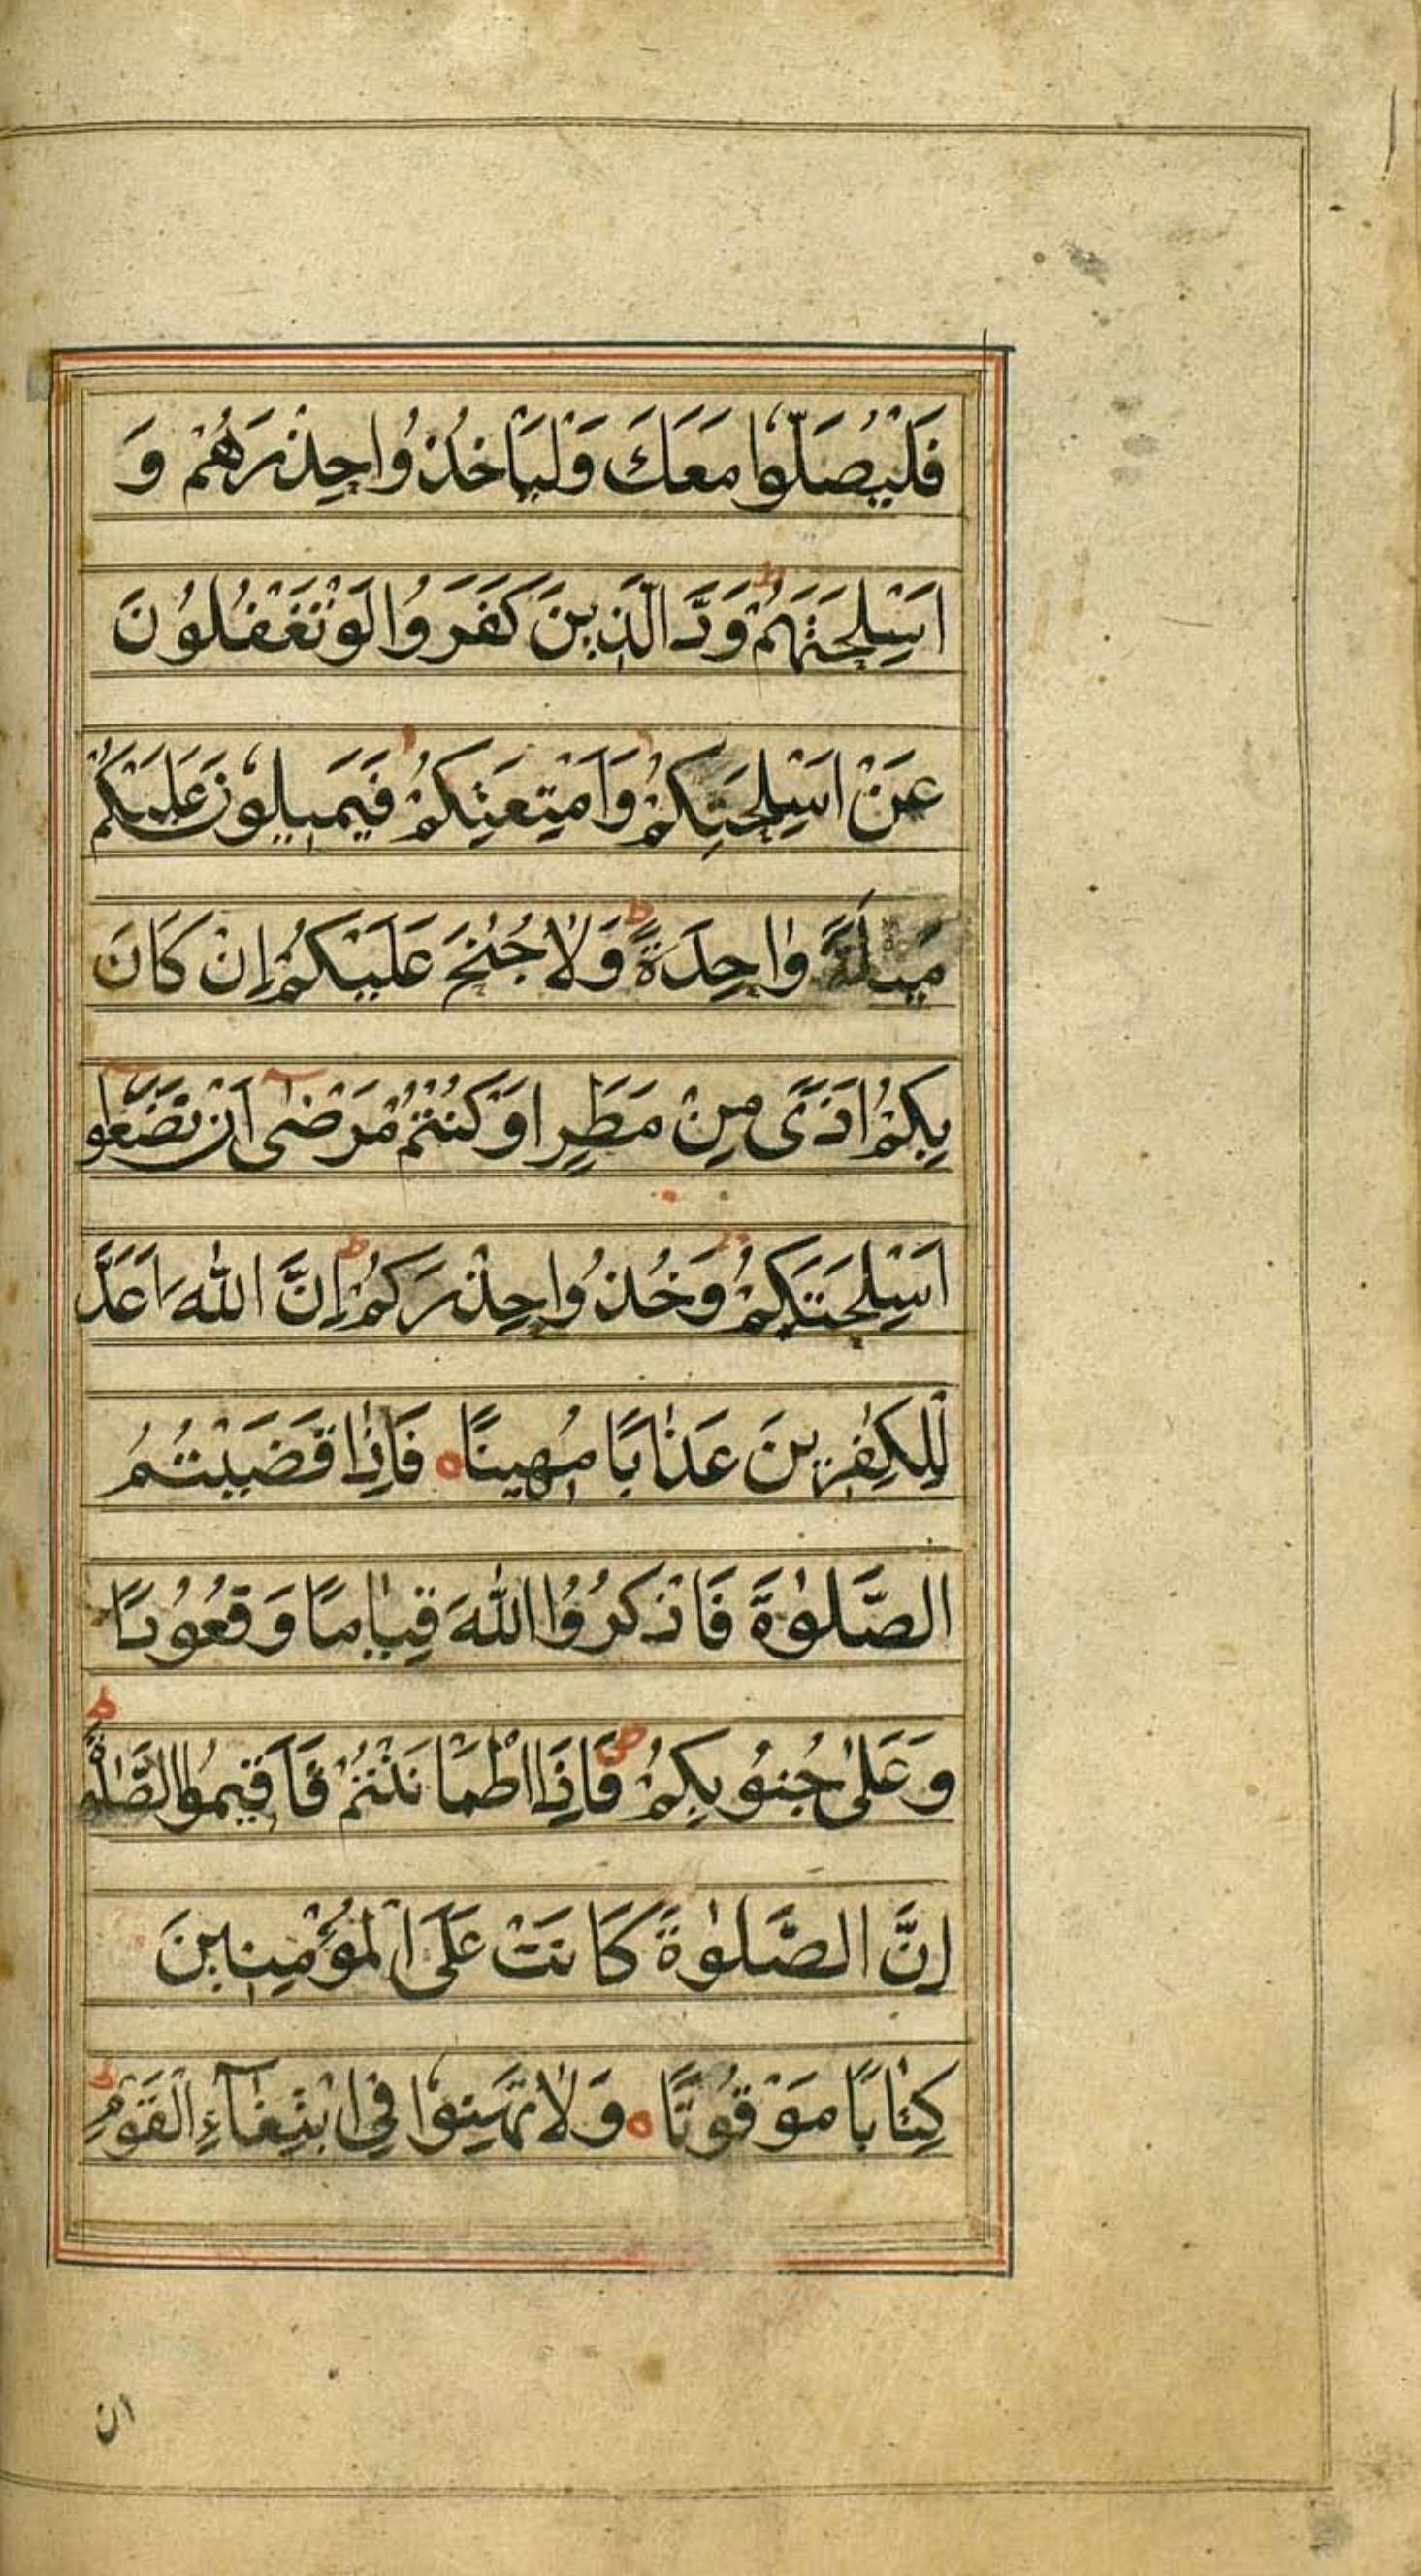 فَلْيُصَلُّوْا مَعَكَ وَلْيَاْخُذُوْا حِذْرَهُمْ وَ
اَسْلِحَتَهُمْ ط وَدَّ الَّذِيْنَ كَفَرُوْا لَوْ تَغْفُلُوْنَ
عَنْ اَسْلِحَتِكُمْ وَاَمْتِعَتِكُمْ فَيَمِيْلُوْنَ عَلَيْكُمْ
مَيْلَةً وَّاحِدَةً ط وَلَا جُنٰحَ عَلَيْكُمْ اِنْ كَانَ
بِكُمْ اَذًى مِنْ مَطَرٍ اَوْ كُنْتُمْ مَرْضٰٓى اَنْ تَضَعُوْٓا
اَسْلِحَتَكُمْ وَخُذُوْا حِذْرَكُمْ ط اِنَّ اللّٰهَ اَعَدَّ
لِلْكٰفِرِيْنَ عَذَابًا مُهِيْنًا ه فَاِذَا قَضَيْتُمُ
الصَّلٰوةَ فَاذْكُرُوا اللّٰهَ قِيَامًا وَقُعُوْدًا
وَعَلٰى جُنُوْبِكُمْ ص فَاِذَا اطْمَاْنَنْتُمْ فَاَقِيْمُوا الصَّلٰوةَ ط
اِنَّ الصَّلٰوةَ كَانَتْ عَلَى الْمُؤْمِنِيْنَ
كِتَابًا مَوْقُوْتًا ه وَلَا تَهِنُوْا فِى ابْتِغَآءِ الْقَوْمِ ط
ان